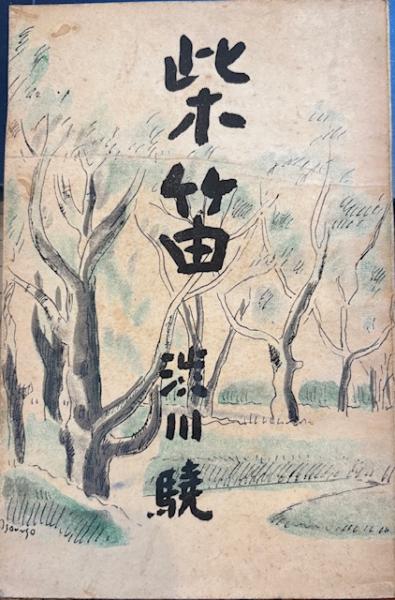 柴笛
渋川 驍